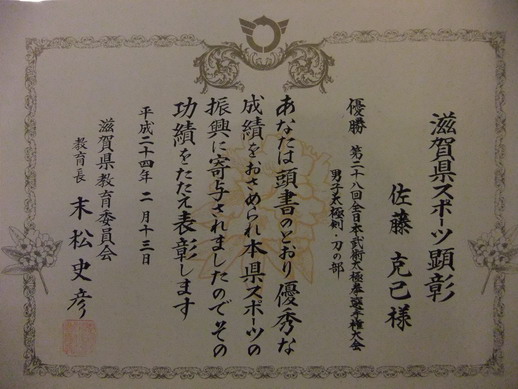 滋賀県スポーツ顕彰
佐藤克己様
優勝 第二十八回全日本武術太極拳選手権大会
男子太極剣・刀の部
あなたは頭書のとおり優秀な
成績をおさめられ本県スポーツの
振興に寄与されましたのでその
功績をたたえ表彰します
平成二十四年二月十三日
滋賀県教育委員会
教育長 末松史彦